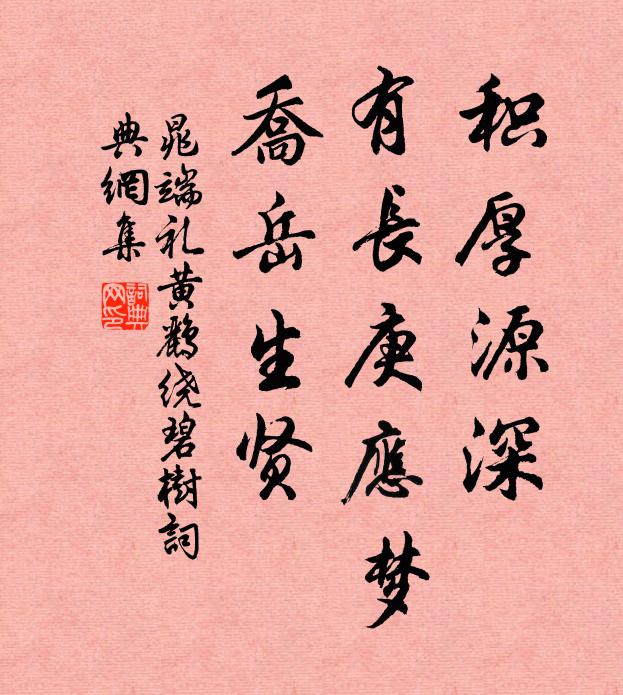 积厚源深
有長庚應梦
喬岳生贤
晁端礼黄鸝绕碧樹詞
典網集
詞典网印